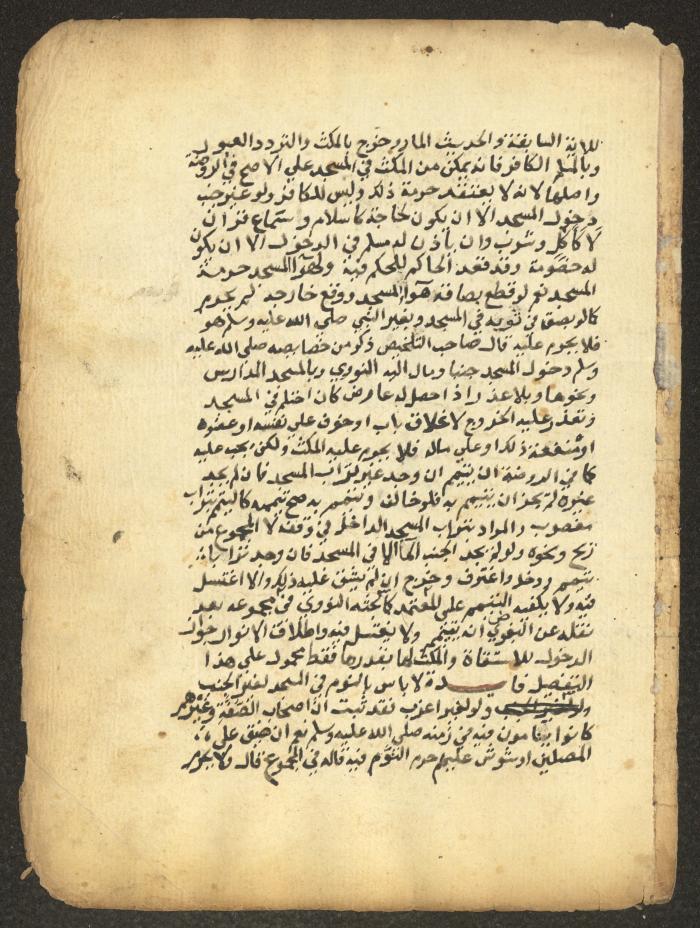 للاية السابقة والحديث المار وخرج بالمكث والتردد العبور
وبالمسلم الكافر فانه يمكن من المكث في المسجد على الاصح في الروضة
واصلها لانه لا يعتقد حرمة ذلك وليس للكافر ولو غير جنب
دخول المسجد الا ان يكون لحاجة كاسلام وسماع قران
لا كاكل وشرب وان ياذن له مسلم في الدخول الا ان يكون
له خصومة وقد قعد الحاكم للحكم فيه ولهوآ المسجد حرمة
المسجد نعم لو قطع بصاقه هوآ المسجد ووقع خارجه لم يحرم
كما لو بصق في ثوبه في المسجد وبغير النبي صلى الله عليه وسلم هو
فلا يحرم عليه قال صاحب التلخيص ذكر من خصايصه صلى الله عليه
وسلم دخول المسجد جنبا ومال اليه النووي وبالمسجد المدارس
ونحوها وبلا عذر اذا حصل له عارض كان احتلم في المسجد
وتعذر عليه الخروج لاغلاق باب او خوف على نفسه او عضوه
او منفعة ذلك او على ماله فلا يحرم عليه المكث ولكن يجب عليه
كما في الروضة ان يتيمم ان وجد غير تراب المسجد فان لم يجد
غيره لم يجز ان يتيمم به فلو خالف وتيمم به صح تيممه كالتيمم بتراب
مغصوب والمراد بتراب المسجد الداخل في وقفه لا المجموع من
ريح ونحوه ولو لم يجد الجنب المآ الا في المسجد فان وجد ترابا
تيمم ودخل واغترف وخرج ان لم يشق عليه ذلك والا اغتسل
فيه ولا يكفيه التيمم على المعتمد كما بحثه النووي في مجموعه بعد
نقله عن البغوي انه يتيمم ولا يغتسل فيه واطلاق الانوار جواز
الدخول للاستقاة والمكث لها بقدرها فقط محمول على هذا
التفصيل فايدة لا باس بالنوم في المسجد لغير الجنب
ولو لغير اعزب فقد ثبت ان اصحاب الصفة وغيرهم
كانوا ينامون فيه في زمنه صلى الله عليه وسلم نعم ان ضيق على
المصلين او شوش عليهم حرم النوم فيه قاله في المجموع قال ولا يحرم